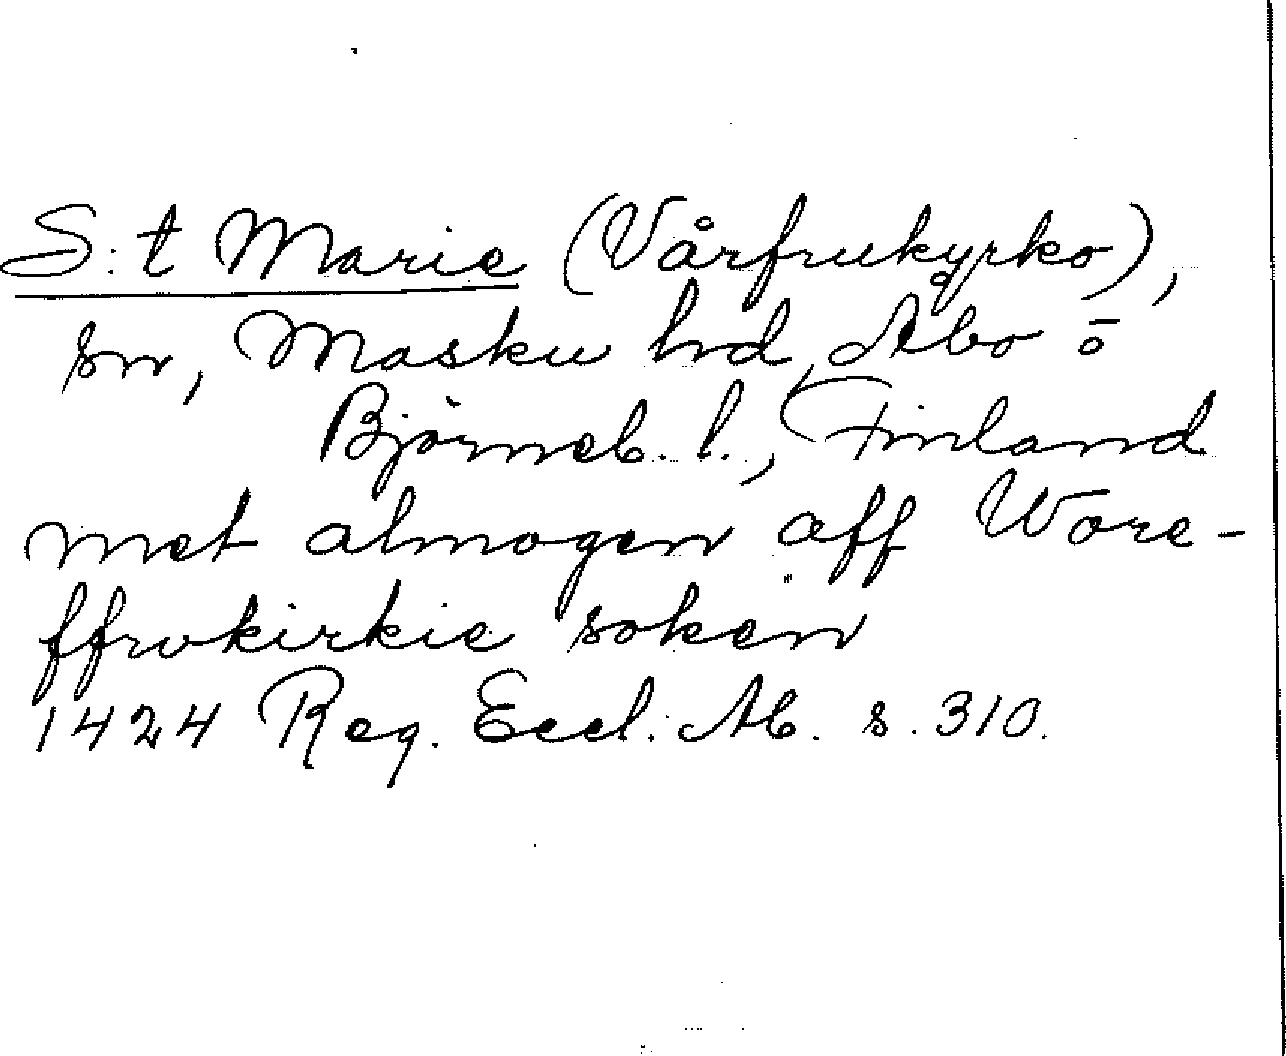 S:t Marie (Vårfrukyrko),
sn, Masku hd, Åbo o
Björneb. l., Finland
met almogen aff Wore-
ffrvkirkie soken
1424 Reg. Eccl. Ab. s. 310.